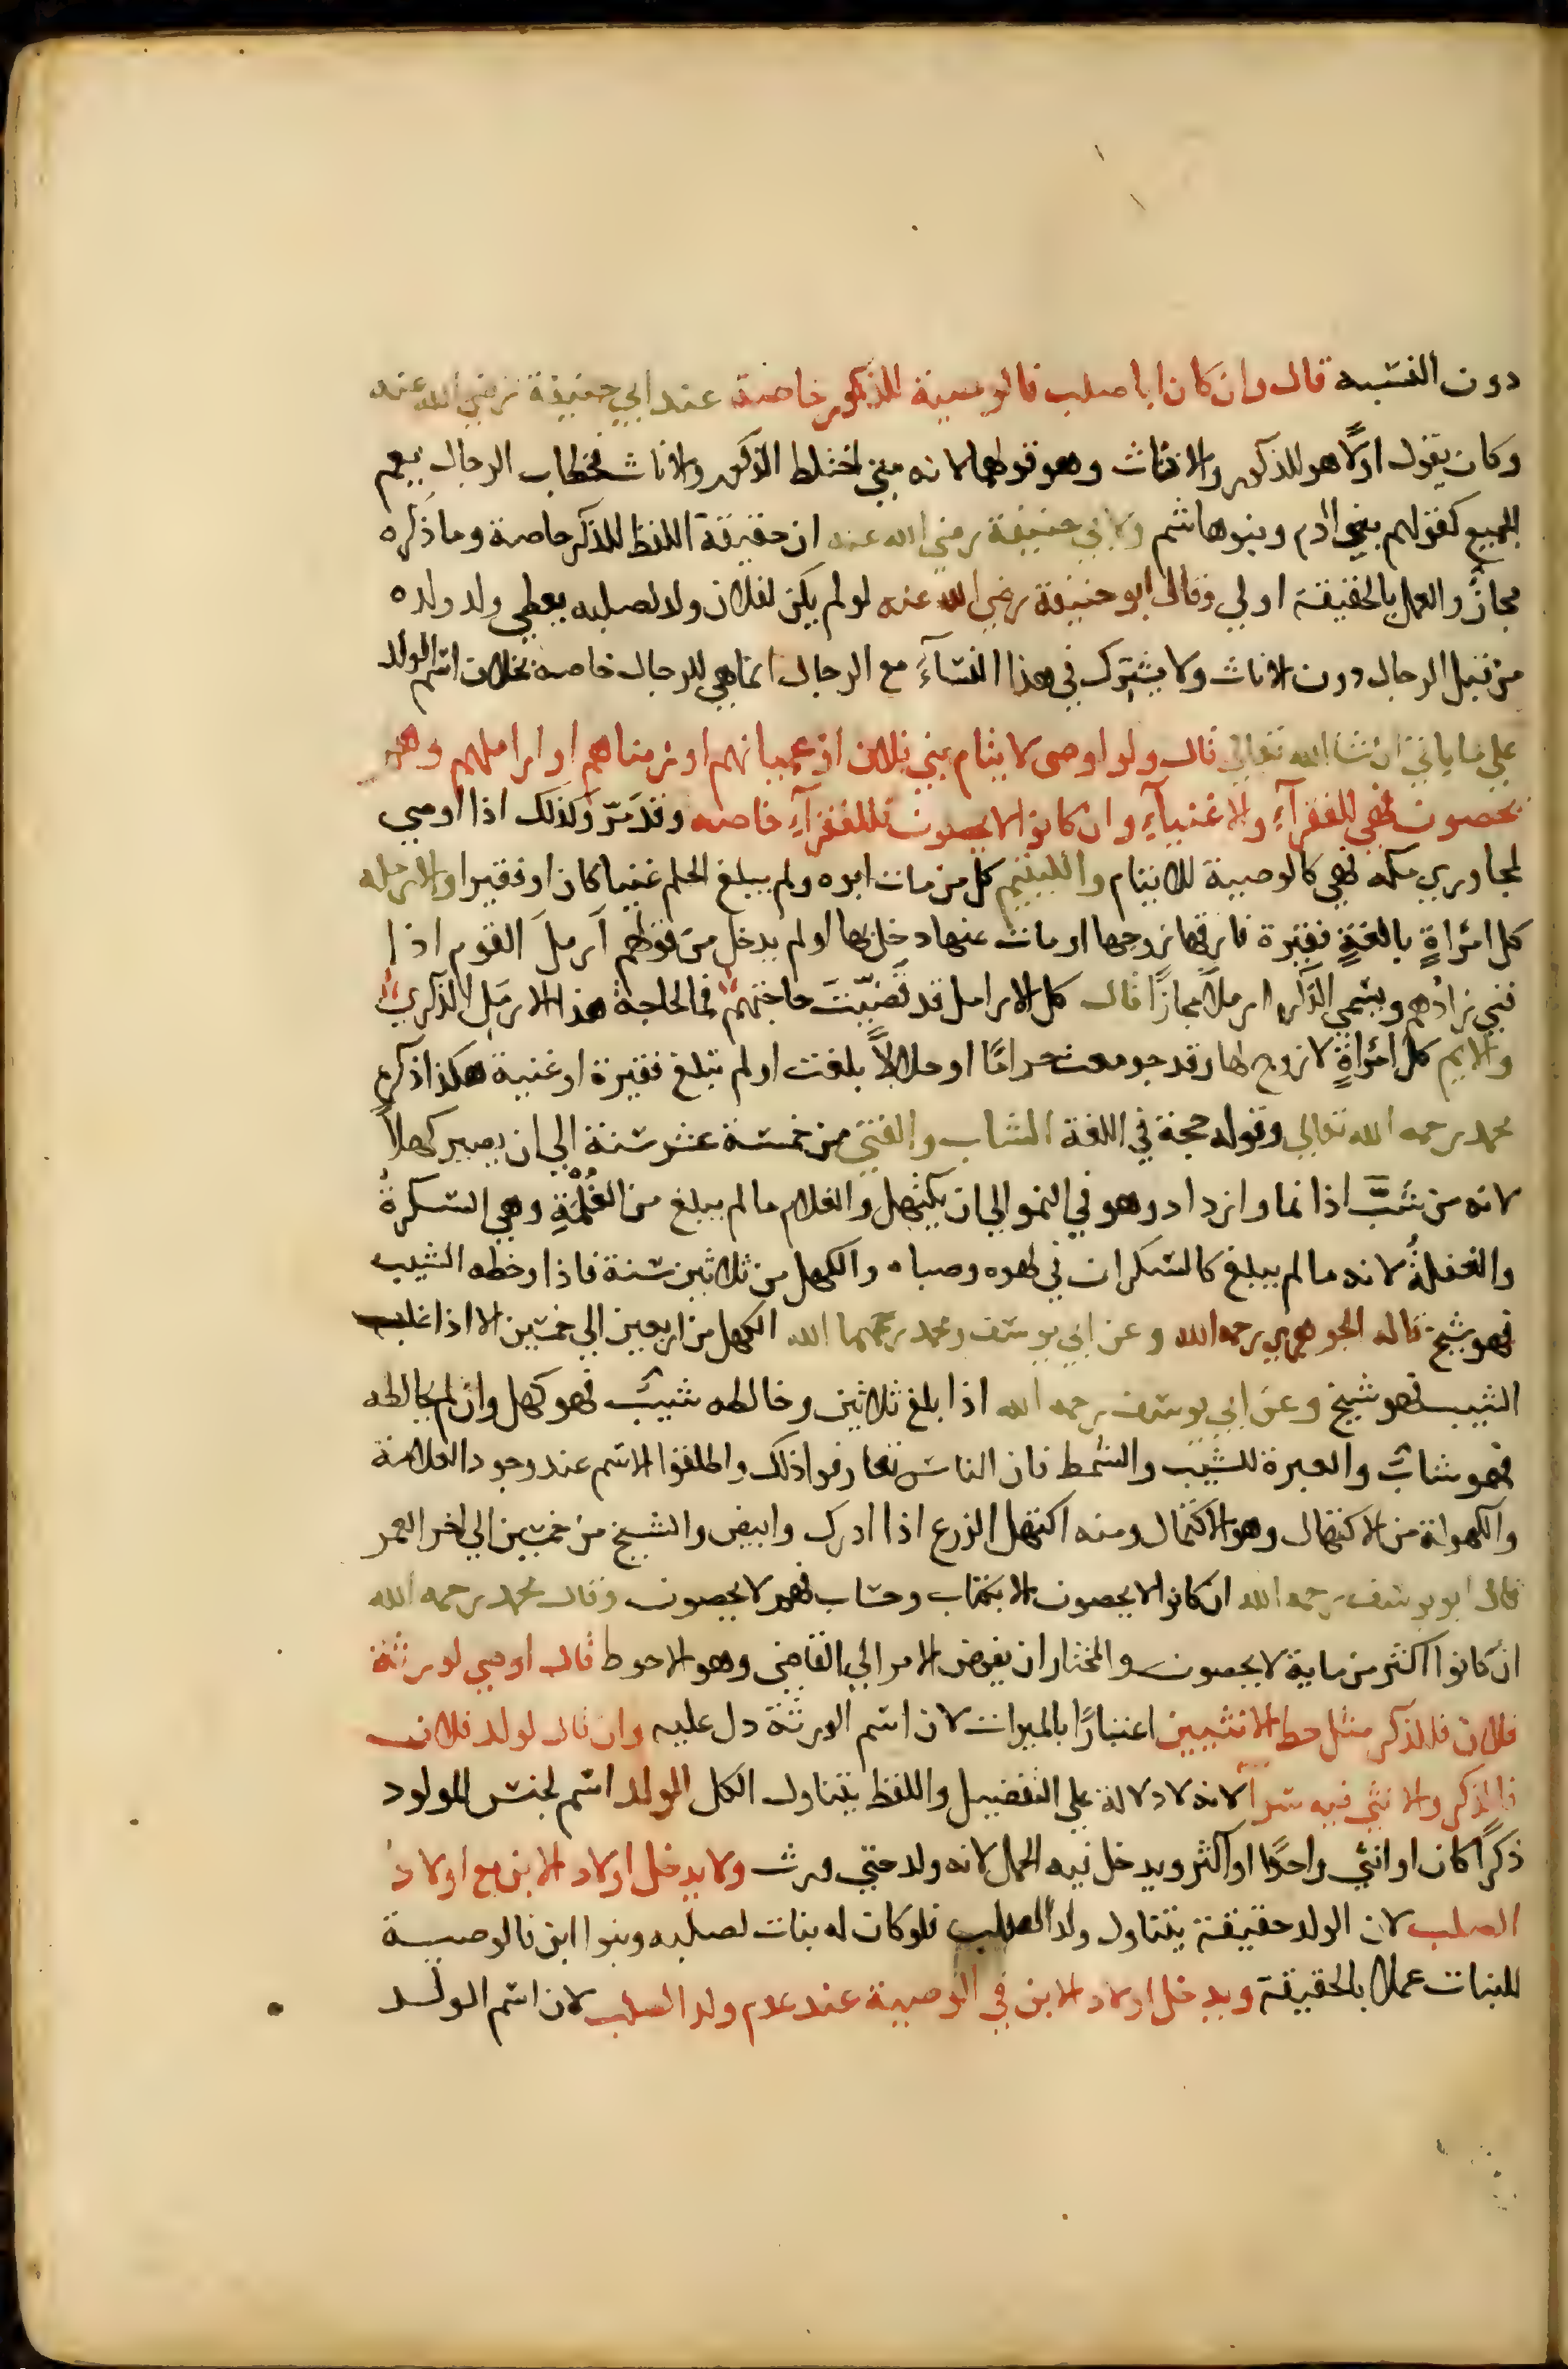 دون النسبه قال وان كان ابا صلب فالوصية للذكور خاصة عند ابي حنيفة رضي الله عنه
وكان يقول اولًا هو للذكور والاناث وهو قولهما لانه متي اختلط الذكور والاناث فخطاب الرجال يعم
الجميع كقولهم بني ادم وبنو هاشم ولابي حنيفة رضي الله عنه ان حقيقة اللفظ للذكر خاصة وما ذكره
مجازٌ والعمل بالحقيقة اولي وقال ابو حنيفة رضي الله عنه لو لم يكن لفلان ولد لصلبه يعطي ولد ولده
من قبل الرجال دون الاناث ولا يشترك في هذا النسآء مع الرجال انما هي للرجال خاصه بخلاف اسم الولد
علي ما ياتي ان شا الله تعالي قال ولو اوصى لايتام بني فلان او عميانهم او زمناهم او اراملهم وهم
يحصون فهي للفقرآءِ والاغنيآءِ وان كانوا لا يحصون فللفقرآءِ خاصه وقد مرّ وكذلك اذا اوصي
لمجاوري مكه فهي كالوصية للايتام واليتيم كل من مات ابوه ولم يبلغ الحلم غنيا كان او فقيرا والارمله
كل امرأةٍ بالغةٍ فقيرة فارقها زوجها او مات عنها دخل بها او لم يدخل من قولهم اَرملَ القوم اذا
فني زادُهم ويسمي الذكر ارملًا مجازًا قال كل الارامل قد قضّيتَ حاجتهم فما لحاجة هذا الارمَلِ الذكرِ
والايم كل امرأةٍ لا زوج لها وقد جومعت حرامًا او حلالًا بلغت او لم تبلغ فقيرة او غنية هكذا ذكره
محمد رحمه الله تعالي وقوله حجة في اللغة الشاب والفتي من خمسة عشر سنة الي ان يصير كهلًا
لانه من شبَّ اذا نما وازداد وهو في النمو الي ان يكتهل والغلام ما لم يبلغ من الغُلْمَةِ وهي السكرةُ
والغفلةُ لانه ما لم يبلغ كالسكران في لهوه وصباه والكهل من ثلاثين سنة فاذا وخطه الشيب
فهو شيخ قاله الجوهري رحمه الله وعن ابي يوسف ومحمد رحمهما الله الكهل من اربعين الي خمسين الا اذا غلب
الشيب فهو شيخ وعن ابي يوسف رحمه الله اذا بلغ ثلاثين وخالطه شيبٌ فهو كهل وان لم يخالطه
فهو شابٌ والعبرة للشيب والشمط فان الناس تعارفوا ذلك واطلقوا الاسم عند وجود العلامة
والكهولة من الاكتهال وهو الاكتمال ومنه اكتهل الزرع اذا ادرك وابيض والشيخ من خمسين الي اخر العمر
قال ابو يوسف رحمه الله ان كانوا لا يحصون الا بكتاب وحساب فهم لا يحصون وقال محمد رحمه الله
ان كانوا اكثر من ماية لا يحصون والمختار ان يفوض الامر الي القاضي وهو الاحوط قال اوصي لورثة
فلان فللذكر مثل حظ الانثيين اعتبارًا بالميراث لان اسم الورثة دل عليه وان قال لولد فلان
فالذكر والانثي فيه سوآ لانه لا دلالة علي التفضيل واللفظ يتناول الكل الولد اسم لجنس المولود
ذكرًا كان او انثي واحدًا او اكثر ويدخل فيه الحمل لانه ولد حتي ورث ولا يدخل اولاد الابن مع اولاد
الصلب لان الولد حقيقة يتناول ولد الصلب فلو كان له بنات لصلبه وبنوا ابن فالوصية
للبنات عملا بالحقيقة ويدخل اولاد الابن في الوصية عند عدم ولد الصلب لان اسم الولد